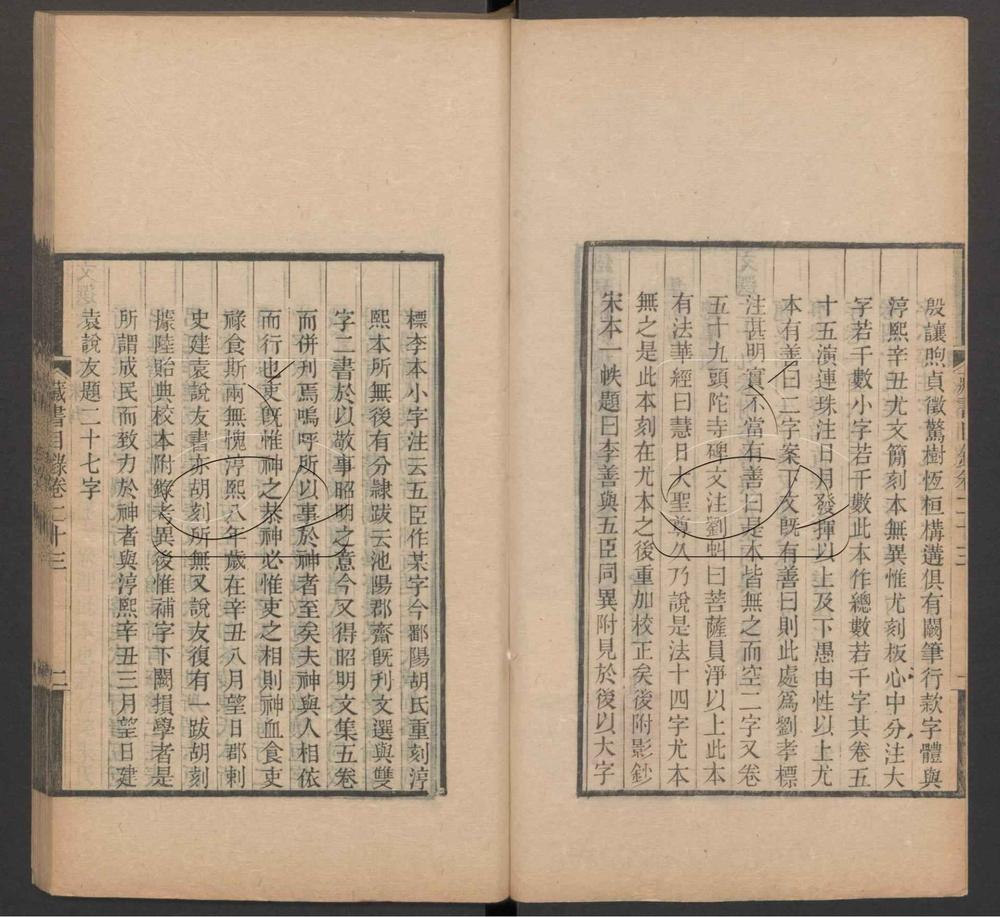 殷讓煦貞徵驚樹恆桓構遘俱有闕筆行款字體與
淳熙辛丑尤文簡刻本無異惟尤刻板心中分注大
字若干數小字若干數此本作總數若干字其卷五
十五演連珠注日月發揮以上及下愚由性以上尤
本有善曰二字案下文旣有善曰則此處爲劉孝標
注甚明實不當有善曰是本皆無之而空二字又卷
五十九頭陀寺碑文注劉虯曰菩薩員淨以上此本
有法華經曰慧日大聖尊久乃說是法十四字尤本
無之是此本刻在尤本之後重加校正矣後附影鈔
宋本一帙題曰李善與五臣同異附見於後以大字
標李本小字注云五臣作某字今鄱陽胡氏重刻淳
熙本所無後有分隷跋云池陽郡齋旣刊文選與雙
字二書於以敬事昭明之意今又得昭明文集五卷
而併刋焉嗚呼所以事於神者至矣夫神與人相依
而行也吏旣惟神之恭神必惟吏之相則神血食吏
祿食斯兩無愧淳熙八年歲在辛丑八月望日郡刺
史建袁說友書亦胡刻所無又說友復有一跋胡刻
據陸貽典校本附錄考異後惟補字下闕損學者是
所謂成民而致力於神者與淳熙辛丑三月望日建
袁說友題二十七字
藏書目錄卷二十三
二